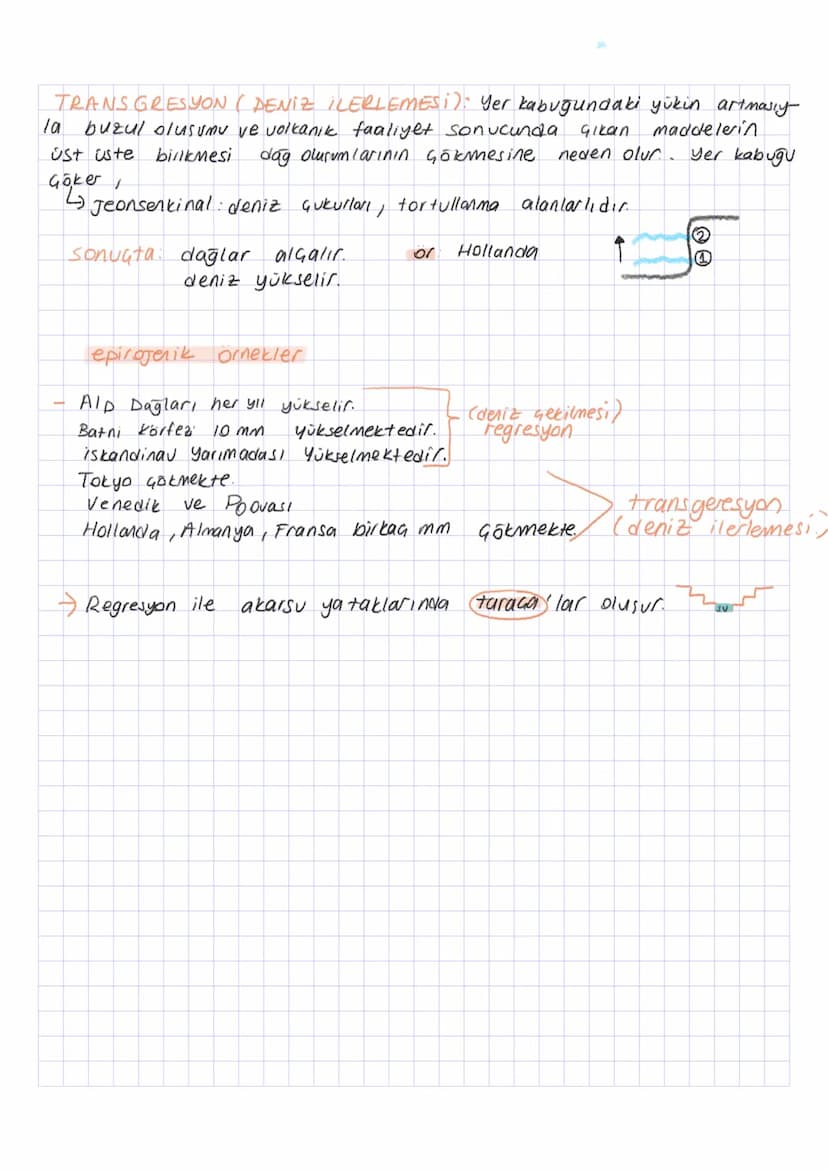 TRANSGRESYON (DENİZ İLERLEMESİ): Yer kabuğundaki yükün artmasıy-
la buzul oluşumu ve volkanik faaliyet sonucunda çıkan maddelerin
üst üste birikmesi dağ oluşumlarının çökmesine neden olur. Yer kabuğu
çöker,
↳ jeonsenkinal: deniz çukurları, tortullanma alanlarlıdır.
sonuçta: dağlar alçalır. ör: Hollanda
deniz yükselir.
②
①
epirojenik örnekler
- Alp Dağları her yıl yükselir.
Batni körfezi 10 mm yükselmektedir.
iskandinav yarımadası yükselmektedir.
(deniz çekilmesi)
regresyon
Tokyo çökmekte.
Venedik ve Poovası
Hollanda, Almanya, Fransa birkaç mm çökmekte.
transgeresyon
(deniz ilerlemesi)
→ Regresyon ile akarsu yataklarında taraça'lar oluşur.
su